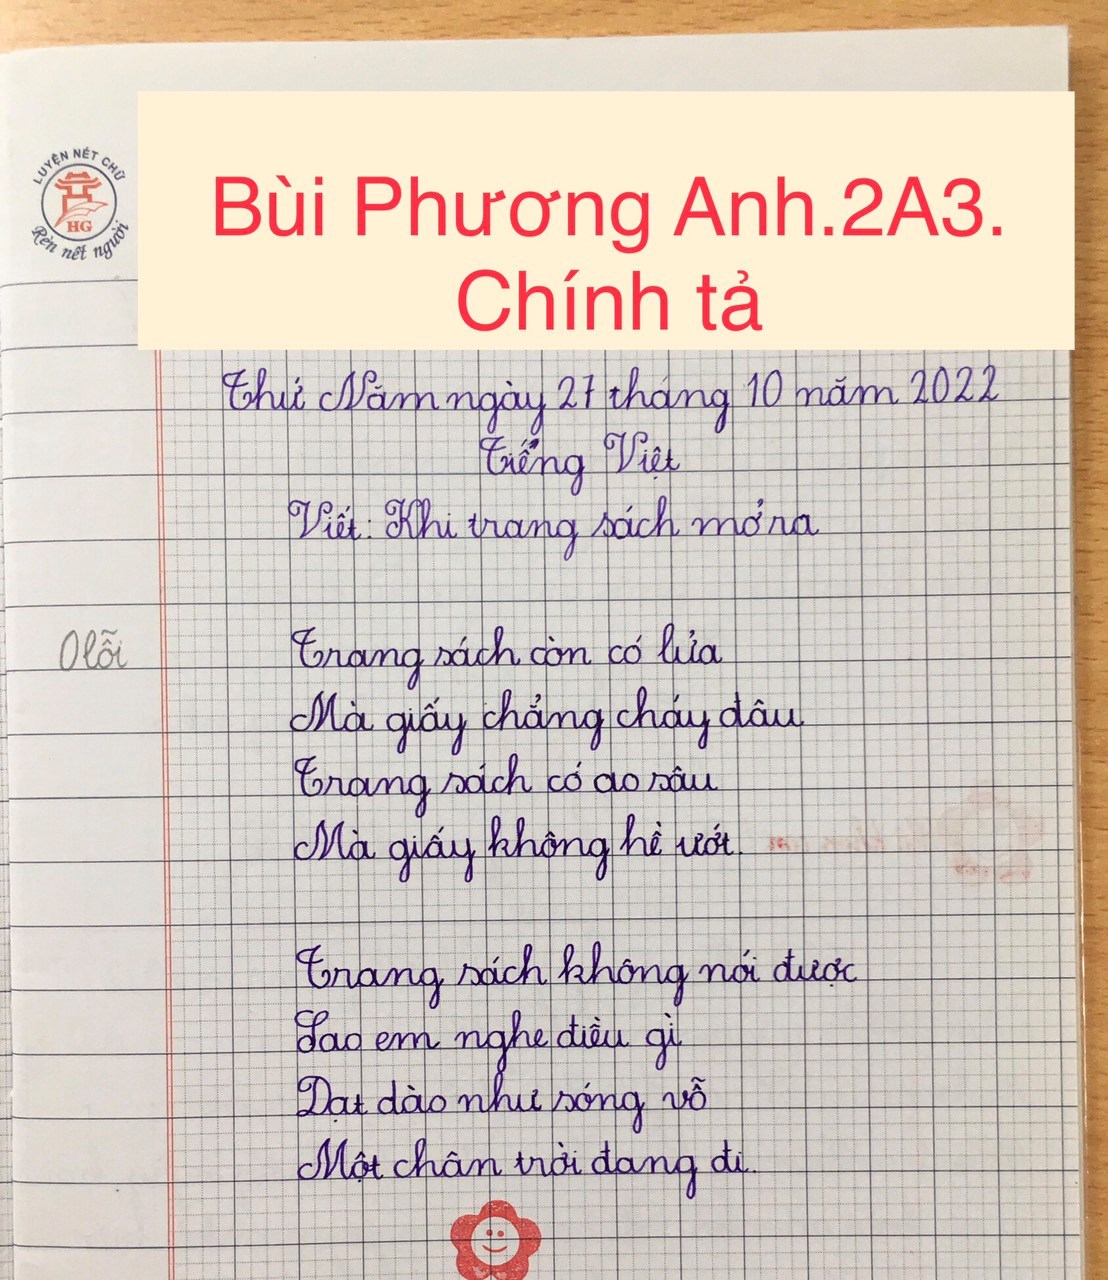 LUYỆN NÉT CHỮ
HG
Rèn nết người
Bùi Phương Anh.2A3.
Chính tả
Thứ Năm ngày 27 tháng 10 năm 2022
Tiếng Việt
Viết: Khi trang sách mở ra
0 lỗi
Trang sách còn có lửa
Mà giấy chẳng cháy đâu
Trang sách có ao sâu
Mà giấy không hề ướt.
Trang sách không nói được
Sao em nghe điều gì
Dạt dào như sóng vỗ
Một chân trời đang đi.